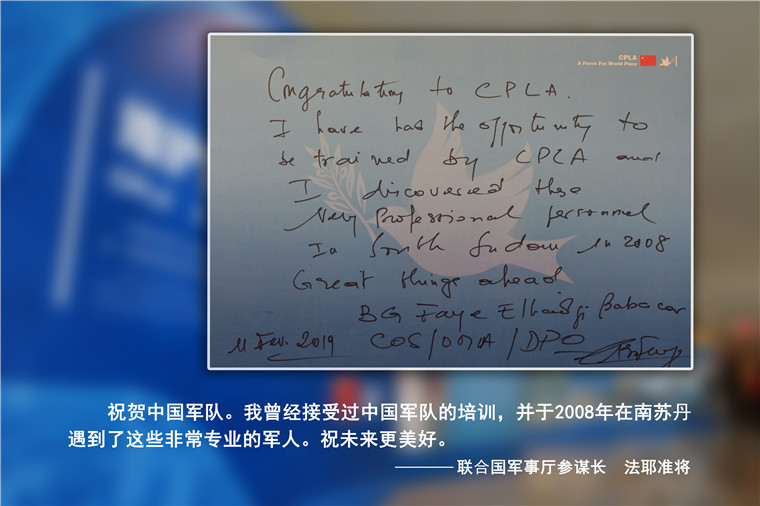 CPLA
A Force For World Peace
Congratulations to CPLA.
I have has the opportunity to
be trained by CPLA and
I discovered these
Very Professional personnel
In South Sudan in 2008
Great things ahead
BG Faye Elhadji Babacar
11 Fev. 2019 COS/OMA/DPO
祝贺中国军队。我曾经接受过中国军队的培训，并于2008年在南苏丹
遇到了这些非常专业的军人。祝未来更美好。
————联合国军事厅参谋长 法耶准将